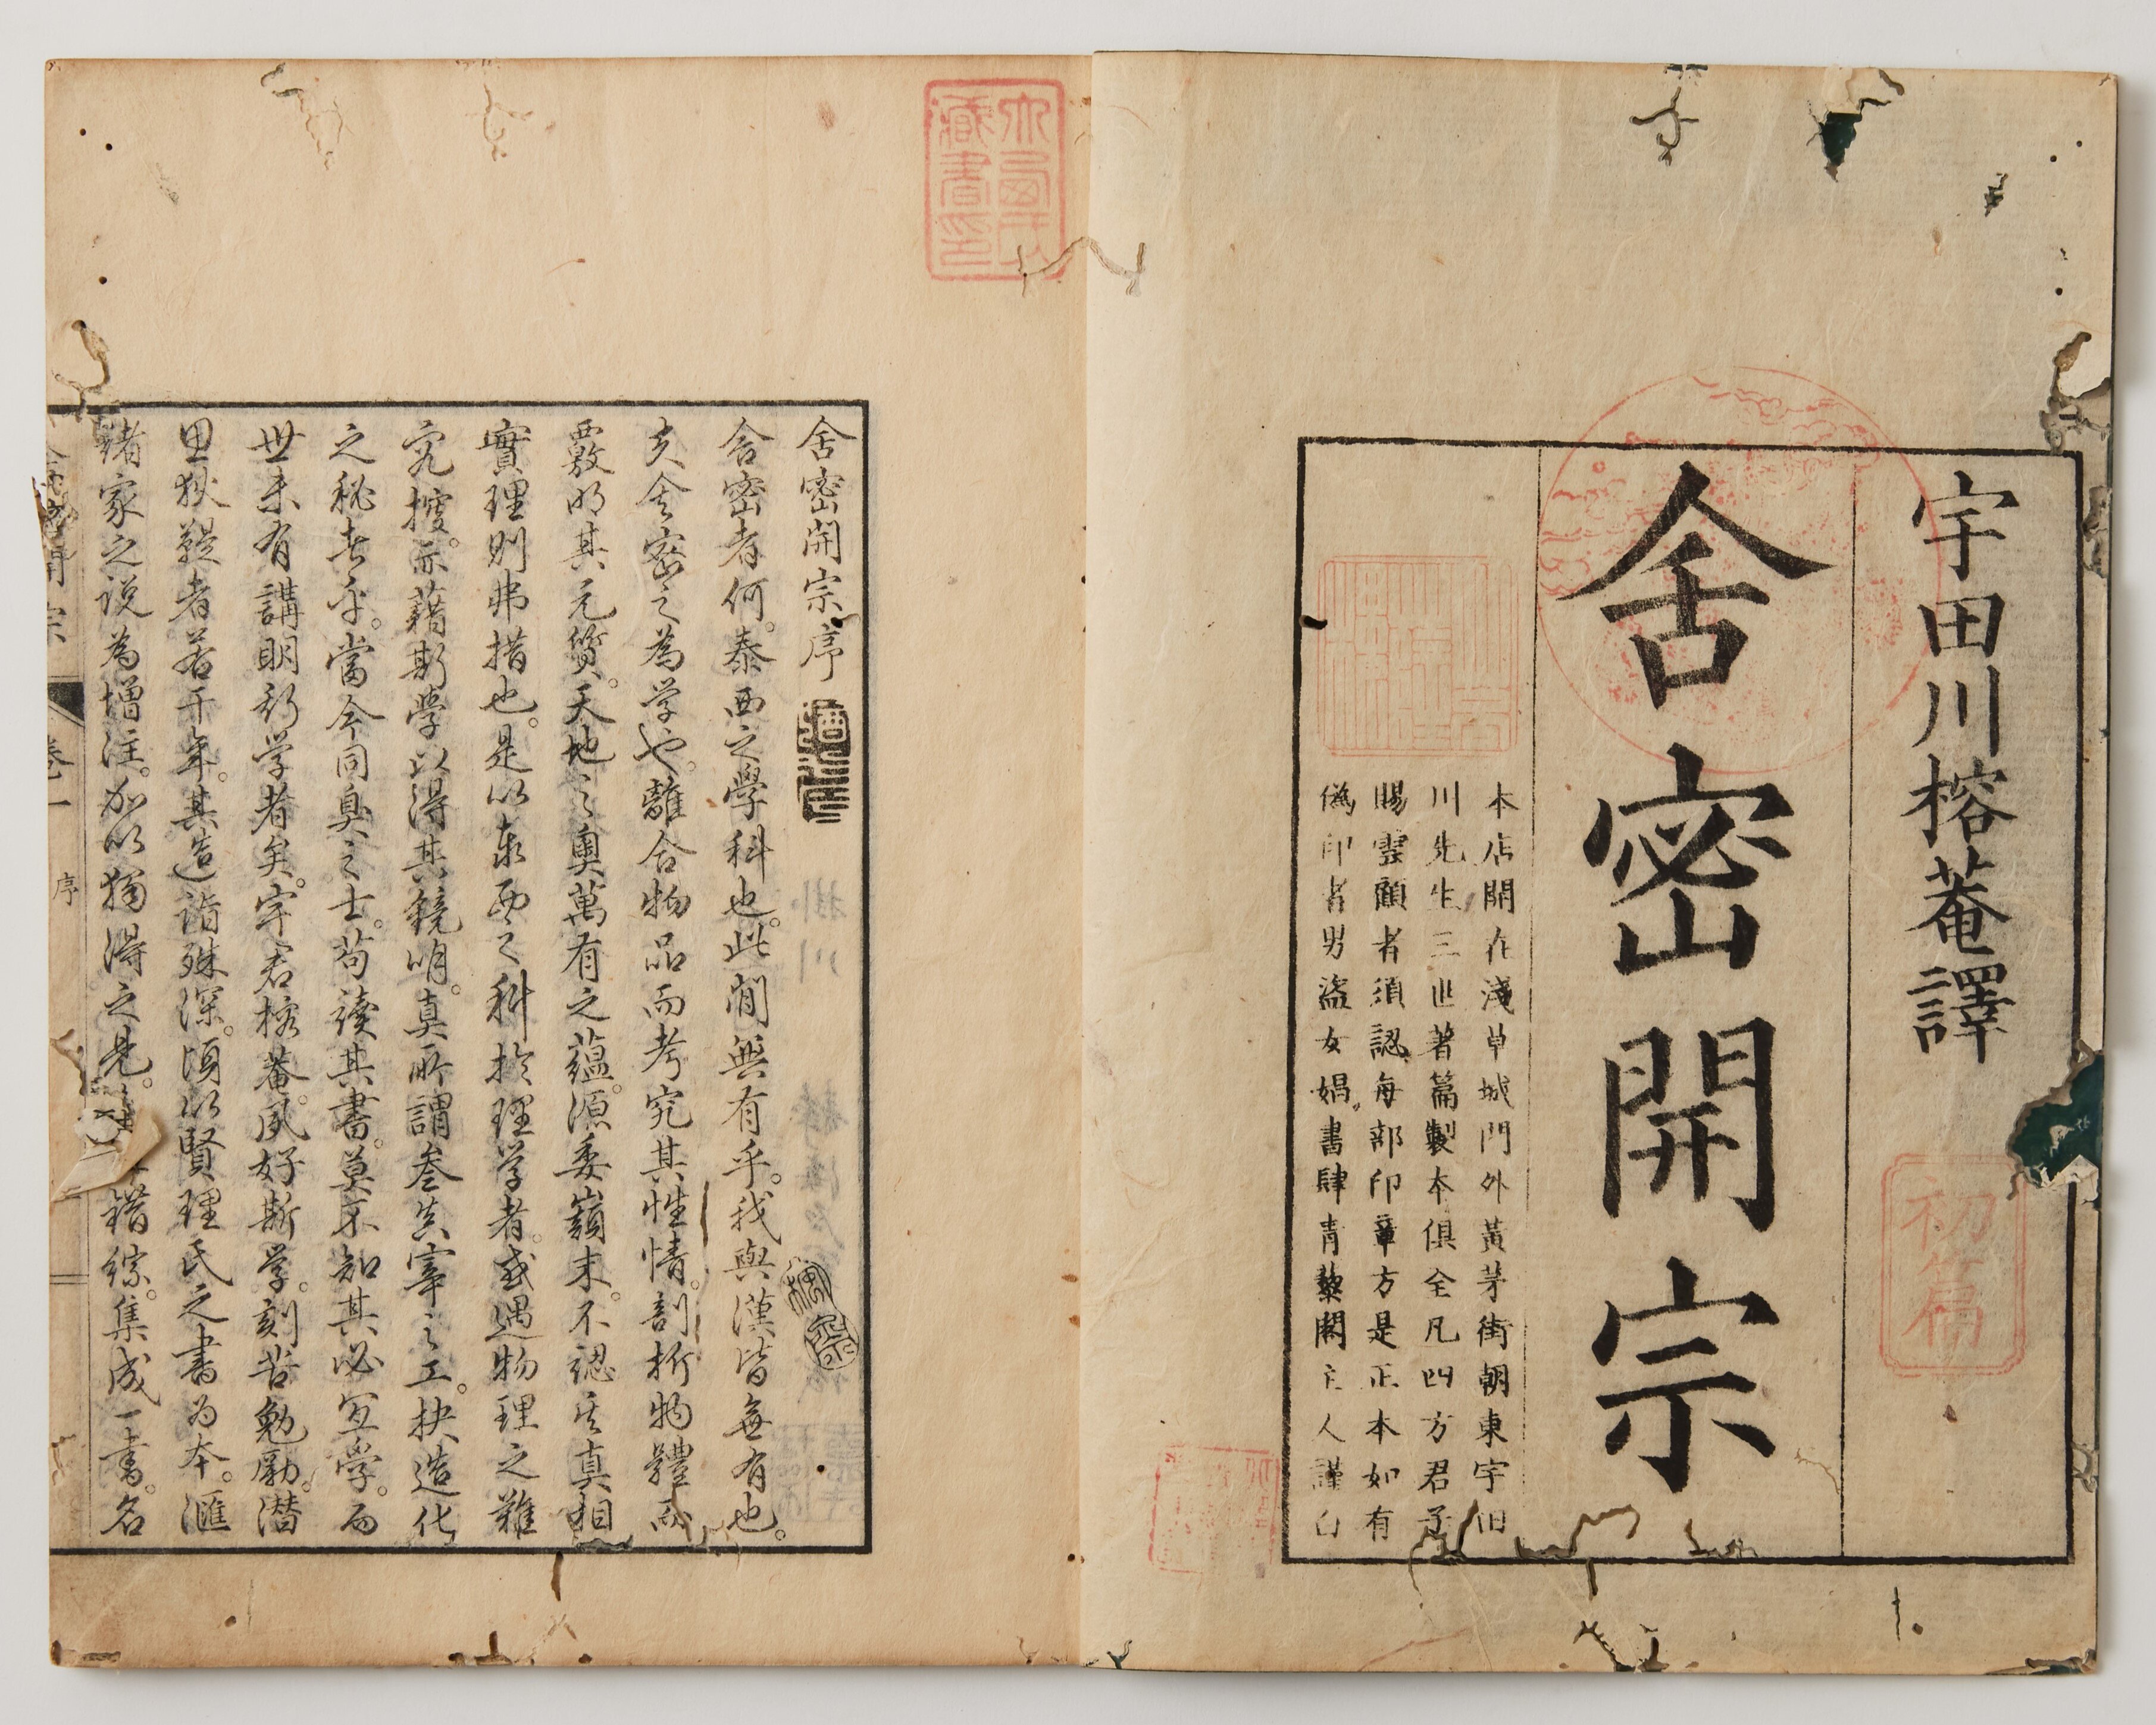 宇田川榕菴譯
初篇
舎密開宗
本店開在淺草城門外黃茅街朝東宇田
川先生三世著篇製本俱全凡四方君子
賜雲顧者須認每部印章方是正本如有
偽印者男盜女娼書肆青藜閣主人謹白
舎密開宗序
舎密者何。泰西之學科也。此間無有乎。我與漢皆無有也。
夫舎密之為学也。離合物品而考究其性情。剖析物體而
覈明其元質。天地之奧萬有之蘊。源委巔末。不認其真相
實理則弗措也。是以泰西之科於理学者。或遇物理之難
究搜。亦藉斯學以得其鏡明。真所謂参造宰之工。抉造化
之秘者乎。當今同臭之士。苟讀其書。莫不知其必宜學。而
世未有講明斯学者矣。宇君榕菴。夙好斯学。刻苦勉勵。潜
思狄鞮者若干年。其造詣殊深。頃以賢理氏之書為本。滙
諸家之説為增注。加以獨得之見。錯綜。集成一書。名
序